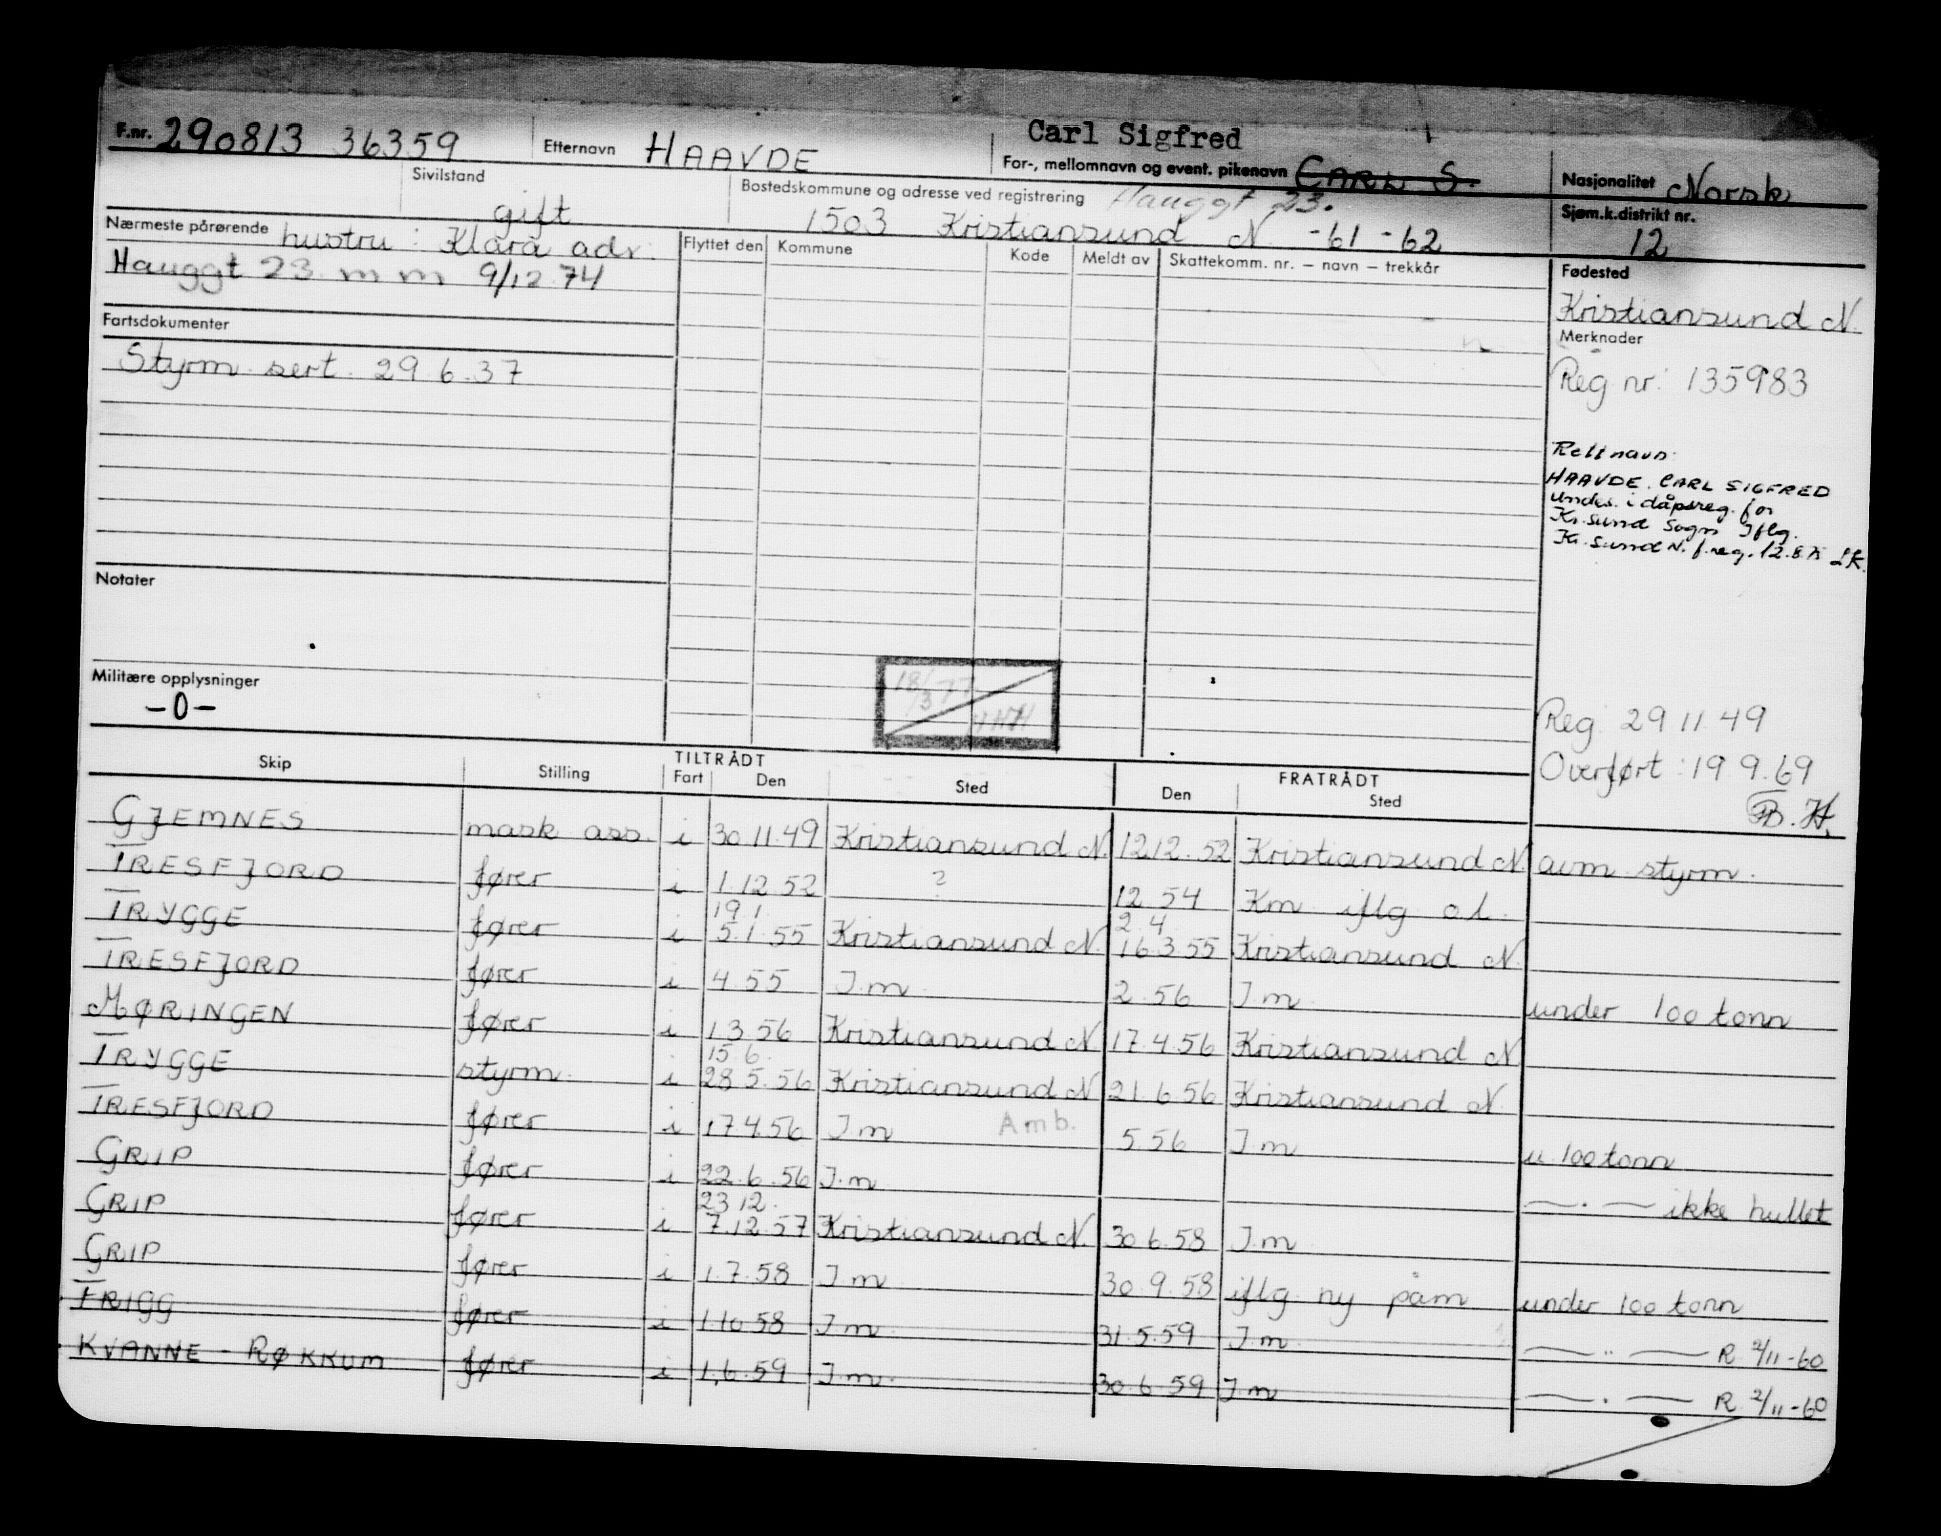 Carl Sigfred
F.nr. 290813 36359 Etternavn HAAVDE For-, mellomnavn og event. pikenavn CARL S. Nasjonalitet Norsk
Sivilstand gift Bostedskommune og adresse ved registrering Hauggt 23. 1503 Kristiansund N -61 -62 Sjøm.k.distrikt nr. 12
Nærmeste pårørende hustru: Klara adr.
Hauggt 23 m m 9/12 74
Flyttet den Kommune Kode Meldt av Skattekomm. nr. – navn – trekkår
Fødested
Kristiansund N.
Fartsdokumenter
Styrm. sert. 29.6.37
Merknader
Reg nr: 135983
Rett navn:
HAAVDE, CARL SIGFRED
i dåpsreg. for
Kr.sund Sogn Iflg.
Kr.sund N. f.reg.
Notater
Militære opplysninger
-0-
18/3 77
Reg. 29 11 49
Overført: 19.9.69
B.H.
Skip Stilling TILTRÅDT Fart Den Sted FRATRÅDT Den Sted
GJEMNES mask ass. i 30.11.49 Kristiansund N. 12.12.52 Kristiansund N. avm styrm.
TRESFJORD fører i 1.12.52 ? 12 54 Km iflg o.l.
19.1. 2 4
TRYGGE fører i 5.1.55 Kristiansund N. 16.3.55 Kristiansund N.
TRESFJORD fører i 4.55 J.m. 2.56 J.m. under 100 tonn
MØRINGEN fører i 1.3.56 Kristiansund N. 17.4.56 Kristiansund N
15.6.
TRYGGE styrm. i 28.5.56 Kristiansund N 21.6.56 Kristiansund N.
TRESFJORD fører i 17.4.56 J.m Amb. 5.56 J.m u 100 tonn
GRIP fører i 22.6.56 J.m — . — ikke hullet
23 12.
GRIP fører i 7.12.57 Kristiansund N. 30.6.58 J.m
GRIP fører i 1.7.58 J.m 30.9.58 iflg. ny påm under 100 tonn
FRIGG fører i 1.10.58 J.m. 31.5.59 J.m. — " — R. 2/11-60
KVANNE - RØKKUM fører i 1.6.59 J.m. 30.6.59 J.m — . — R. 2/11-60